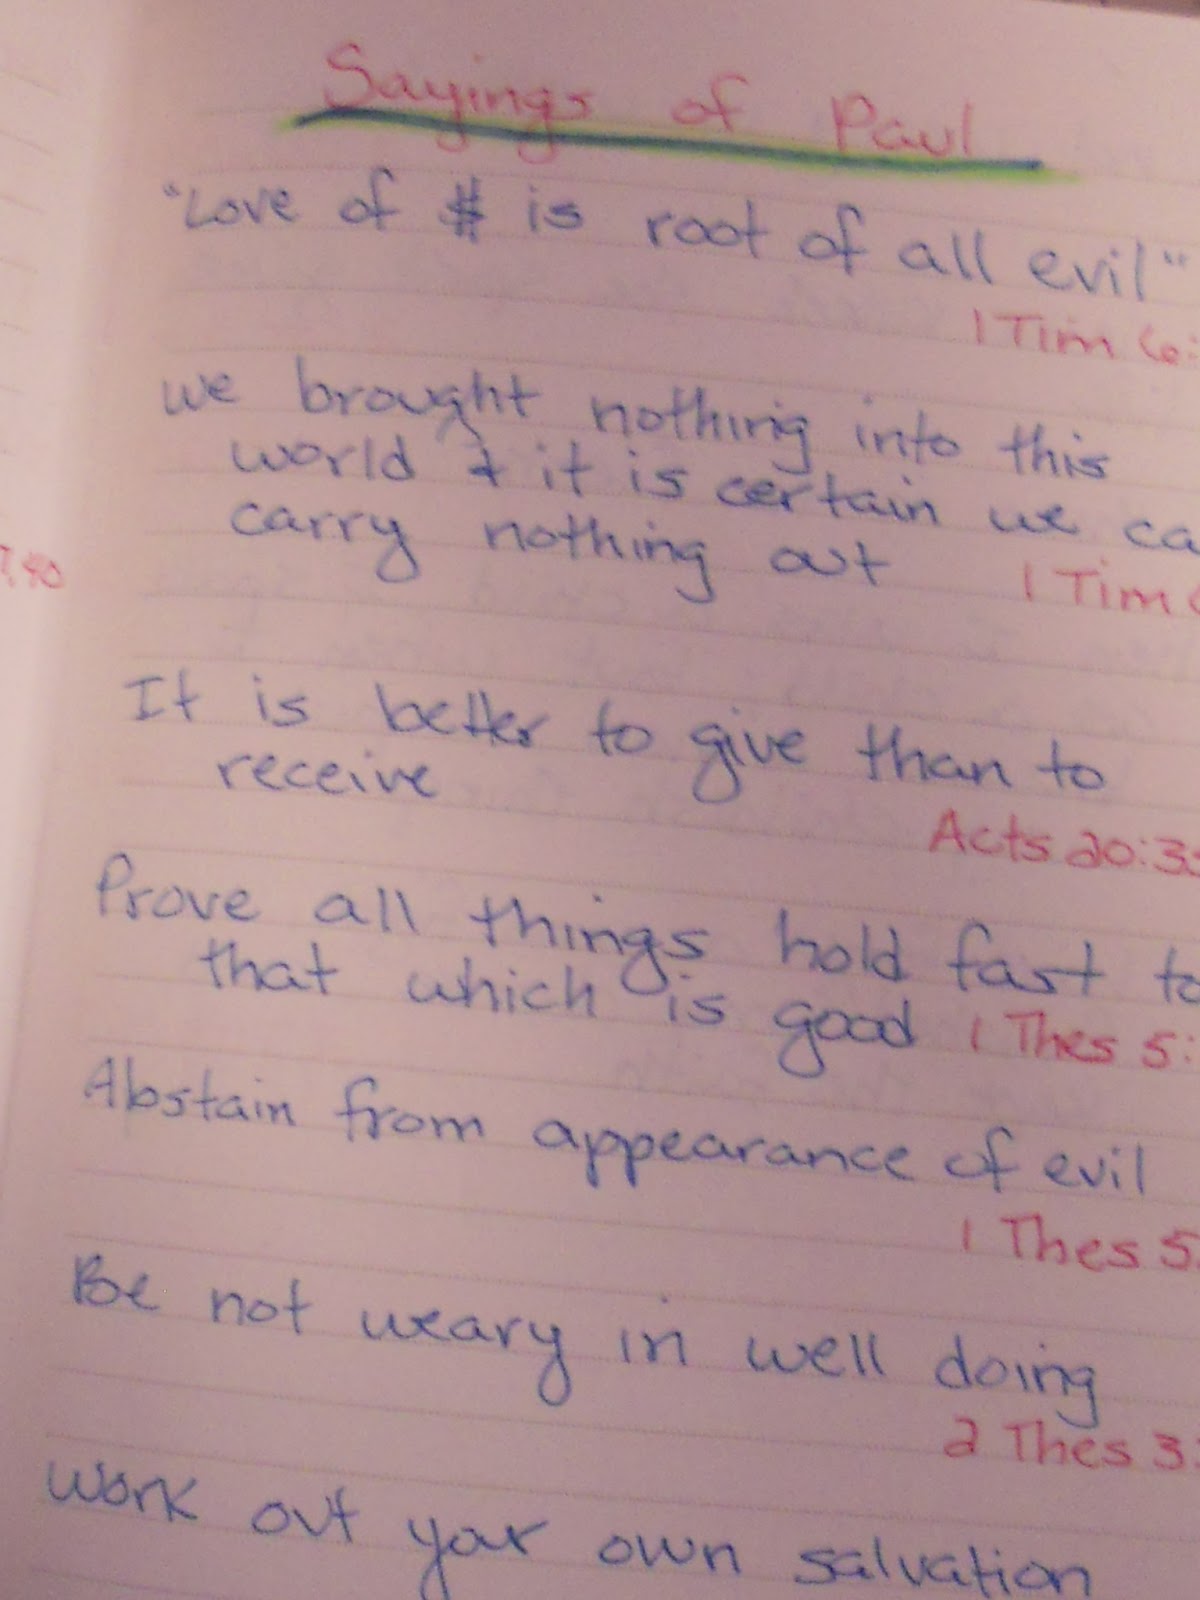 Sayings of Paul
"Love of $ is root of all evil"
1 Tim 6:
we brought nothing into this
world & it is certain we ca
carry nothing out
1 Tim
7,40
It is better to give than to
receive
Acts 20:3
Prove all things hold fast to
that which is good 1 Thes 5:
Abstain from appearance of evil
1 Thes 5:
Be not weary in well doing
2 Thes 3:
Work out your own salvation